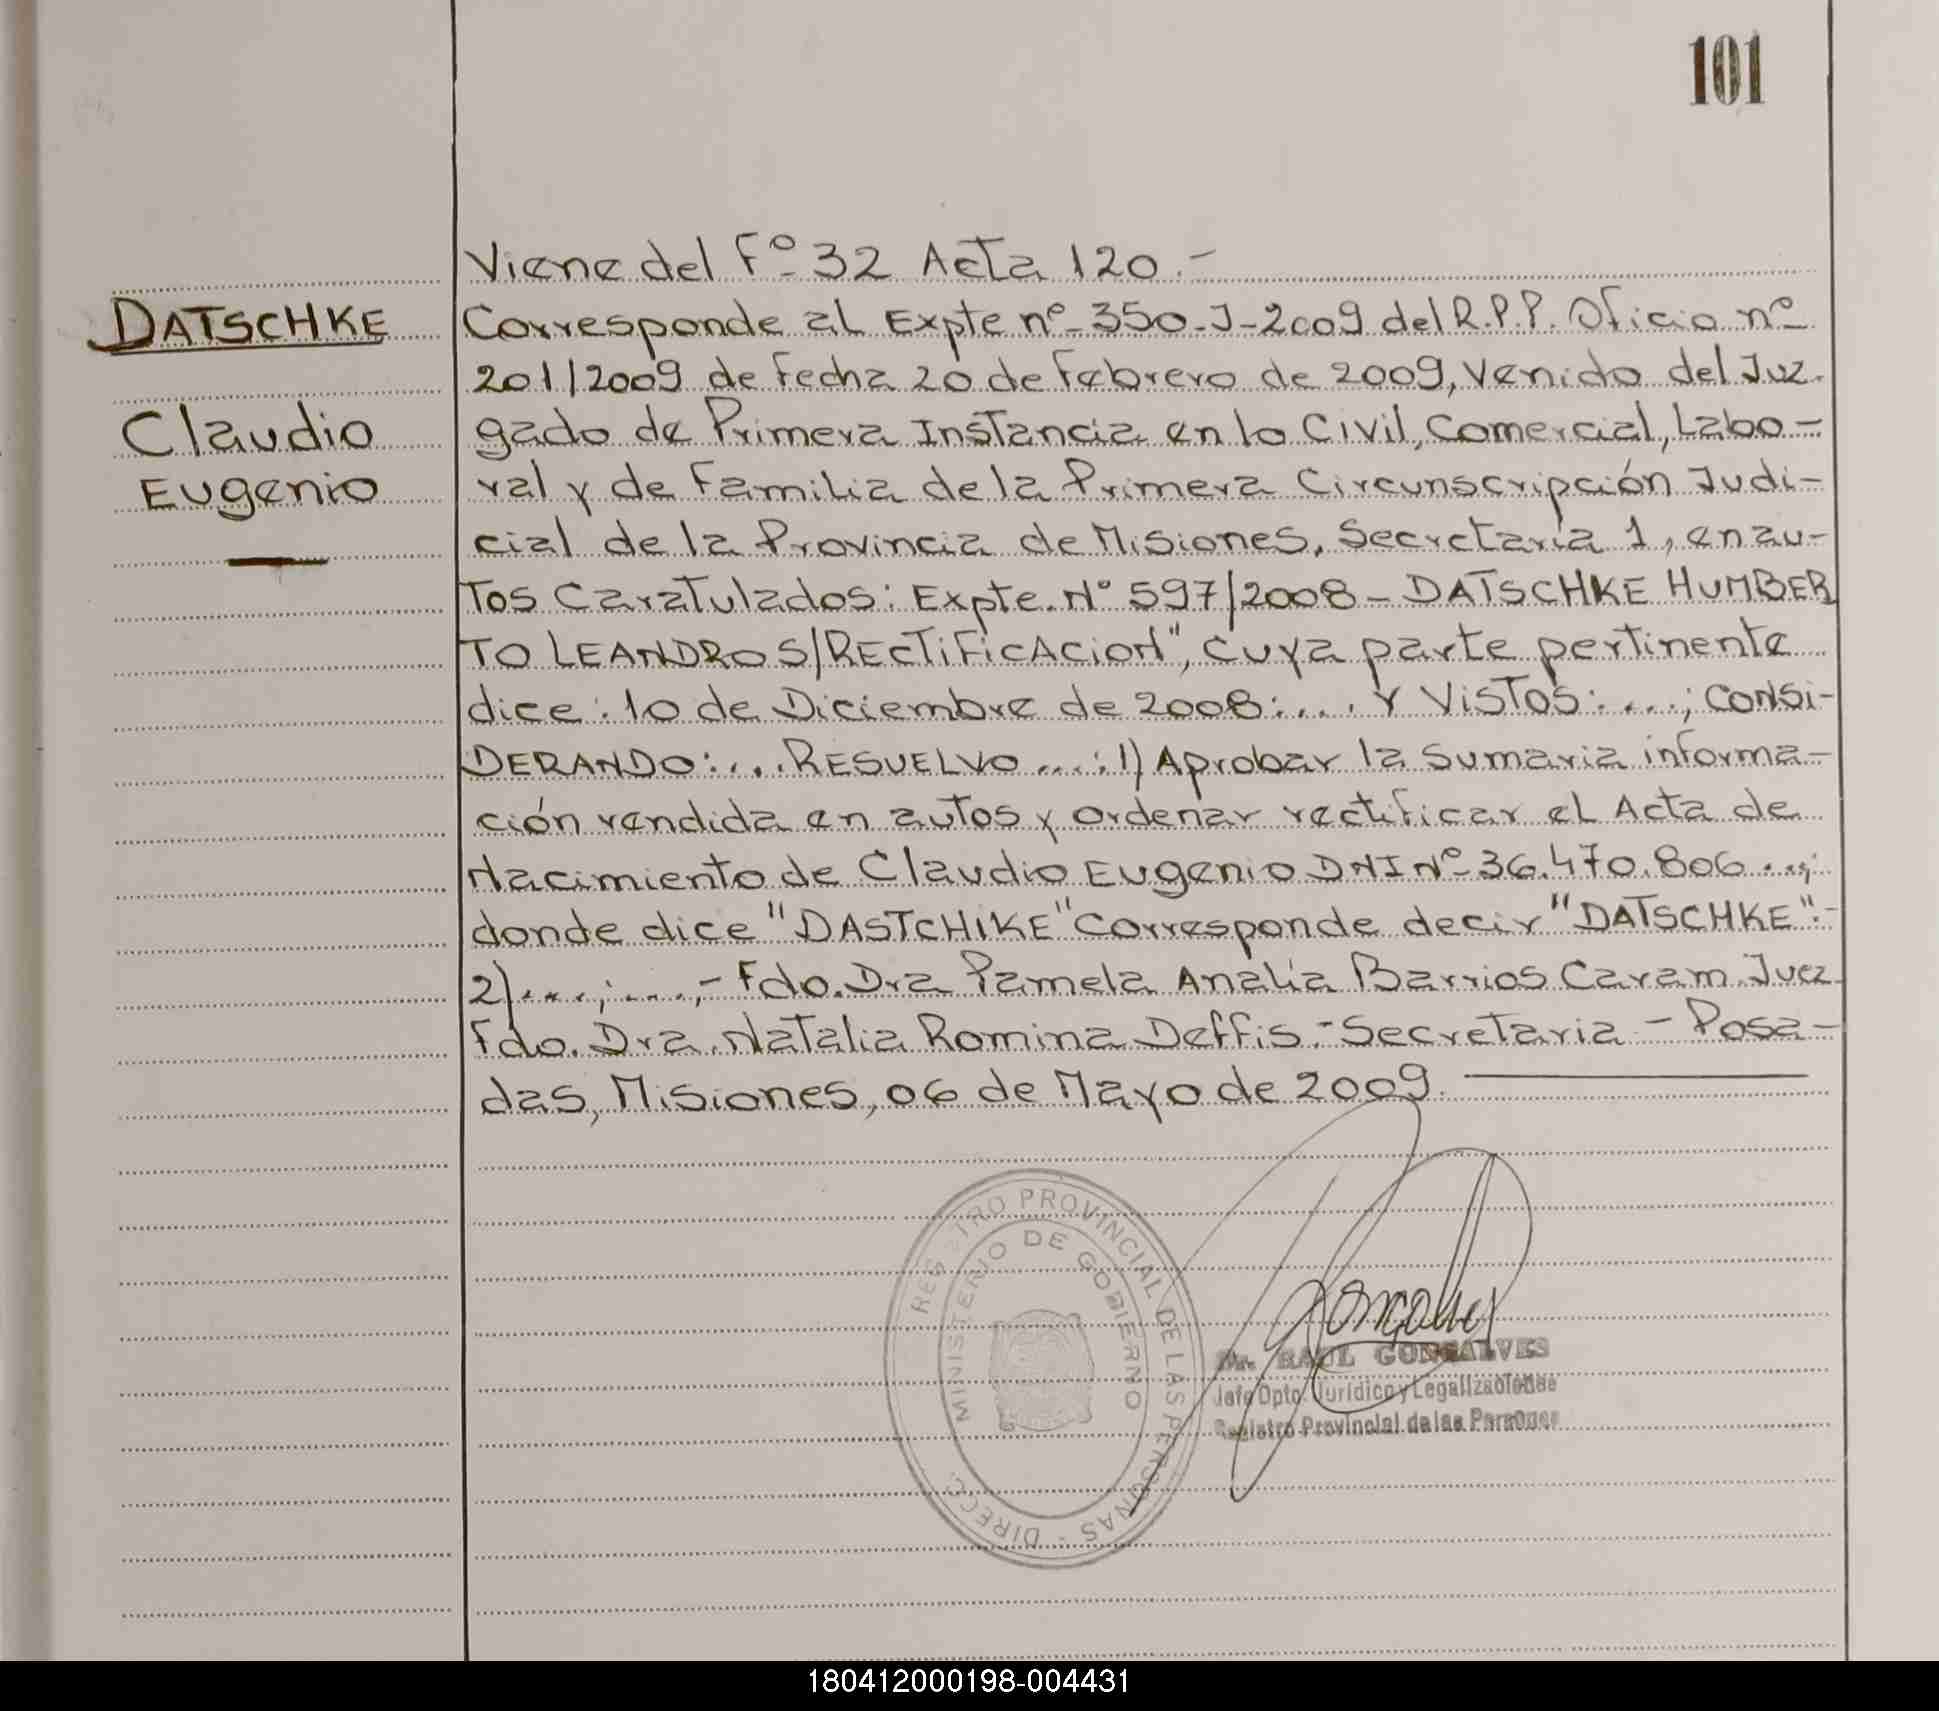 101
Viene del Fº 32 Acta 120.-
DATSCHKE
Claudio
Eugenio
Corresponde al Expte nº 350-J-2009 del R.P.P. Oficio nº
201/2009 de fecha 20 de Febrero de 2009, Venido del Juz-
gado de Primera Instancia en lo Civil, Comercial, Labo-
ral y de Familia de la Primera Circunscripción Judi-
cial de la Provincia de Misiones, Secretaría 1, en au-
tos Caratulados: Expte. Nº 597/2008 - DATSCHKE HUMBER
TO LEANDRO S/RECTIFICACION", Cuya parte pertinente
dice: 10 de Diciembre de 2008:.... Y VISTOS:....; CONSI-
DERANDO:... RESUELVO ...: 1) Aprobar la Sumaria informa-
ción rendida en autos y ordenar rectificar el Acta de
Nacimiento de Claudio Eugenio DNI Nº 36.470.806 ...;
donde dice "DASTCHIKE" Corresponde decir "DATSCHKE".-
2)....;....,- Fdo. Dra Pamela Analía Barrios Caram. Juez.
Fdo. Dra. Natalia Romina Deffis.- Secretaria - Posa-
das, Misiones, 06 de Mayo de 2009.
DIRECC. REGISTRO PROVINCIAL DE LAS PERSONAS -
MINISTERIO DE GOBIERNO
Dr. RAUL GONSALVES
Jefe Dpto. Jurídico y Legalizaciones
Registro Provincial de las Personas
180412000198-004431